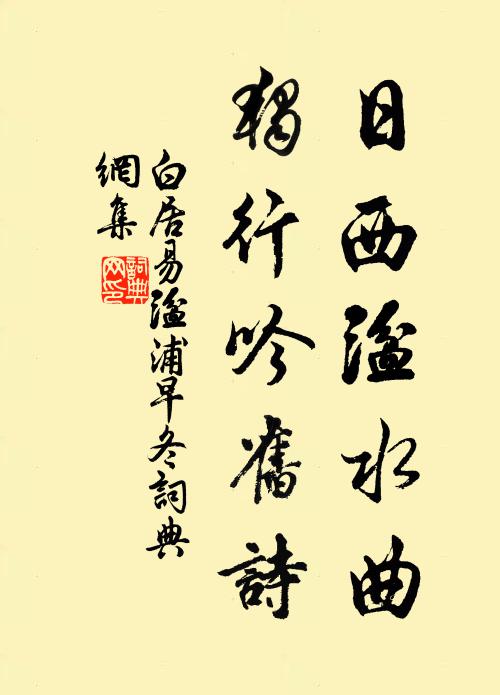 日西湓水曲
獨行吟舊詩
白居易湓浦早冬詞典
網集
詞典
网印